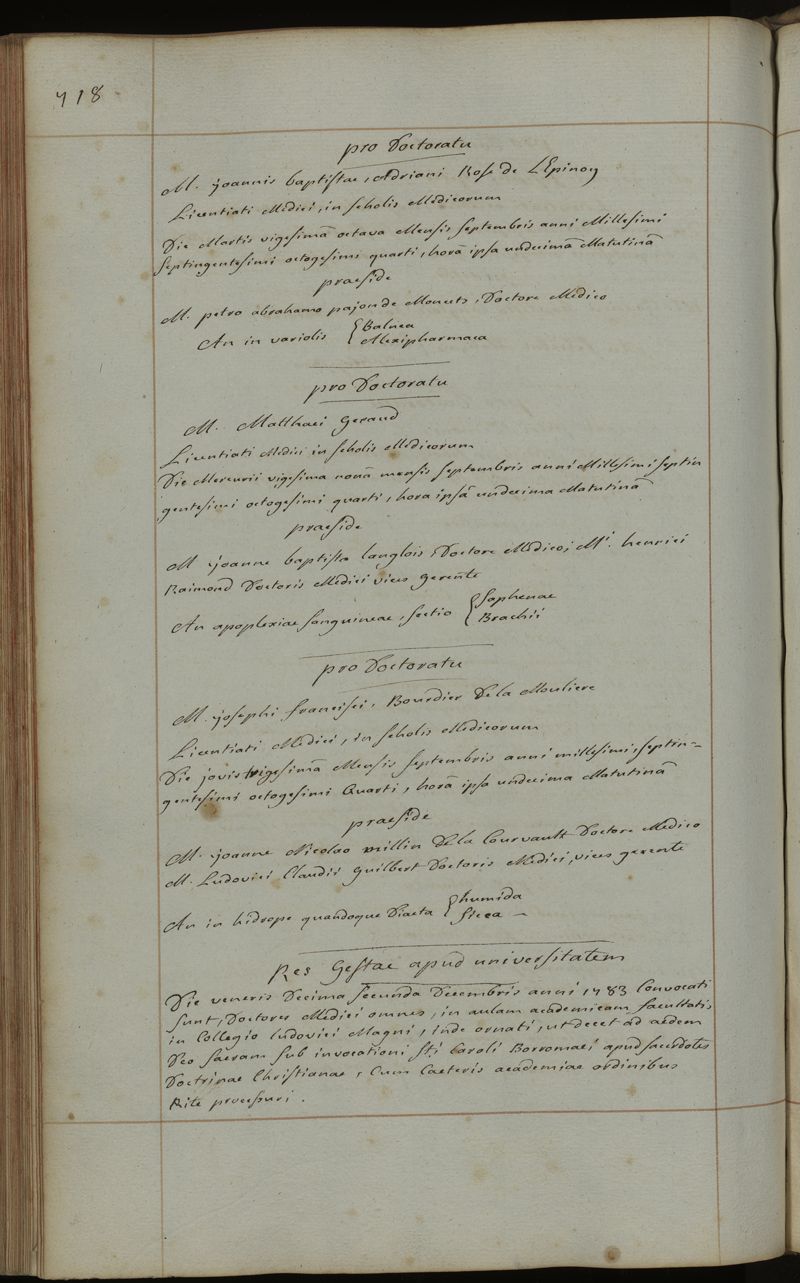 718
pro Doctoratu
M. joannis baptistae, adriani Rose de LEpinoy
Licentiati Medici, in scholis Medicorum
Die Martis vigesimâ octava Mensis septembris anni Millesimi
septingentesimi octogesimi quarti, horâ ipsa undecimâ Matutinâ
praeside
M. petro abrahamo pajon de Moncets, Doctore Medico
An in variolis { Balnea
Alexipharmaca
pro Doctoratu
M. Matthaei Geraud
Licentiati Medici in scholis Medicorum
Die Mercurii vigesima nonâ mensis septembris anni Millesimi septin
gentesimi octogesimi quarti, hora ipsâ undecima Matutinâ
praeside
M joanne baptista langlois, Doctore Medico, Mi. henrici
Raimond Doctoris Medici vices gerente
An apoplexiae sanguineae, sectio { saphenae
Brachii
pro Doctoratu
M. josephi francisci, Bourdier De la Mouliere
Licentiati Medici, in scholis Medicorum
Die jovis trigesimâ Mensis septembris anni millesimi, septin-
gentesimi octogesimi Quarti, horâ ipsa undecima Matutinâ
praeside
M. joanne Nicolao millin De la Courvault Doctore Medico
M. Ludovici Claudii guilbert Doctoris Medici, vices gerente
An in hidrope quandoque Diaeta { humida
sicca -
Res Gestae apud universitatem
Die veneris Decima secunda Decembris anni 1783 Convocati
sunt, Doctores Medici omnes, in aulam academicam facultatis
in Collegio ludovici Magni, inde ornati, ut decet ad aedem
Deo sacram sub invocationi sti Caroli Borromaei apud sacerdotes
Doctrinae Christianae, Cum Caeteris academiae ordinibus
Rite processuri.